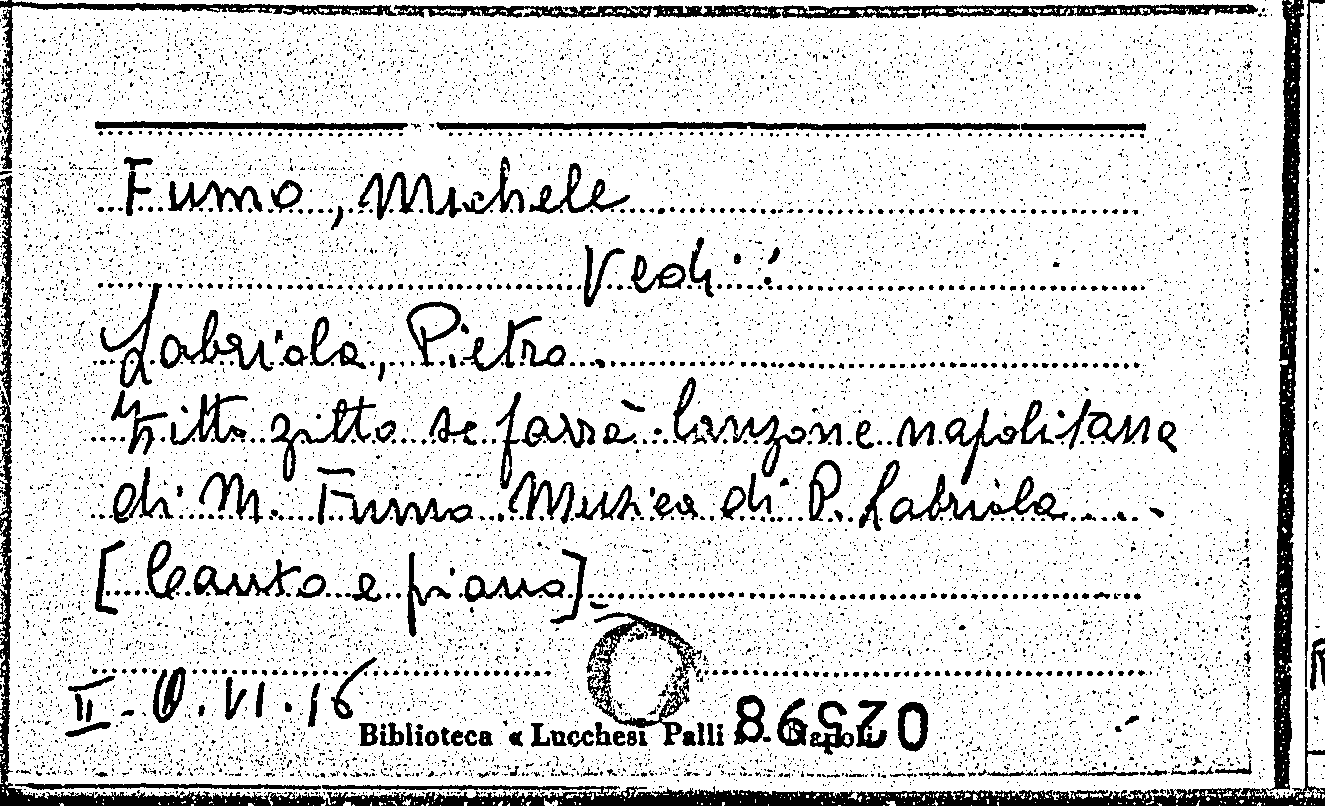 Fumo, Michele
Vedi:
Labriola, Pietro.
Zitto zitto se farrà. Canzone napolitana
di M. Fumo. Musica di P. Labriola...
[Canto e piano].
II - O. VI. 16
Biblioteca « Lucchesi Palli » - Napoli